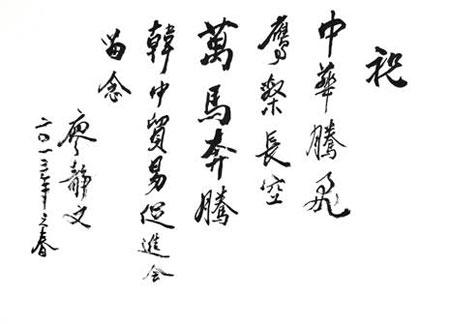 祝
中華騰飛
鷹擊長空
萬馬奔騰
韓中貿易促進会
留念
廖靜文
二〇一三年之春